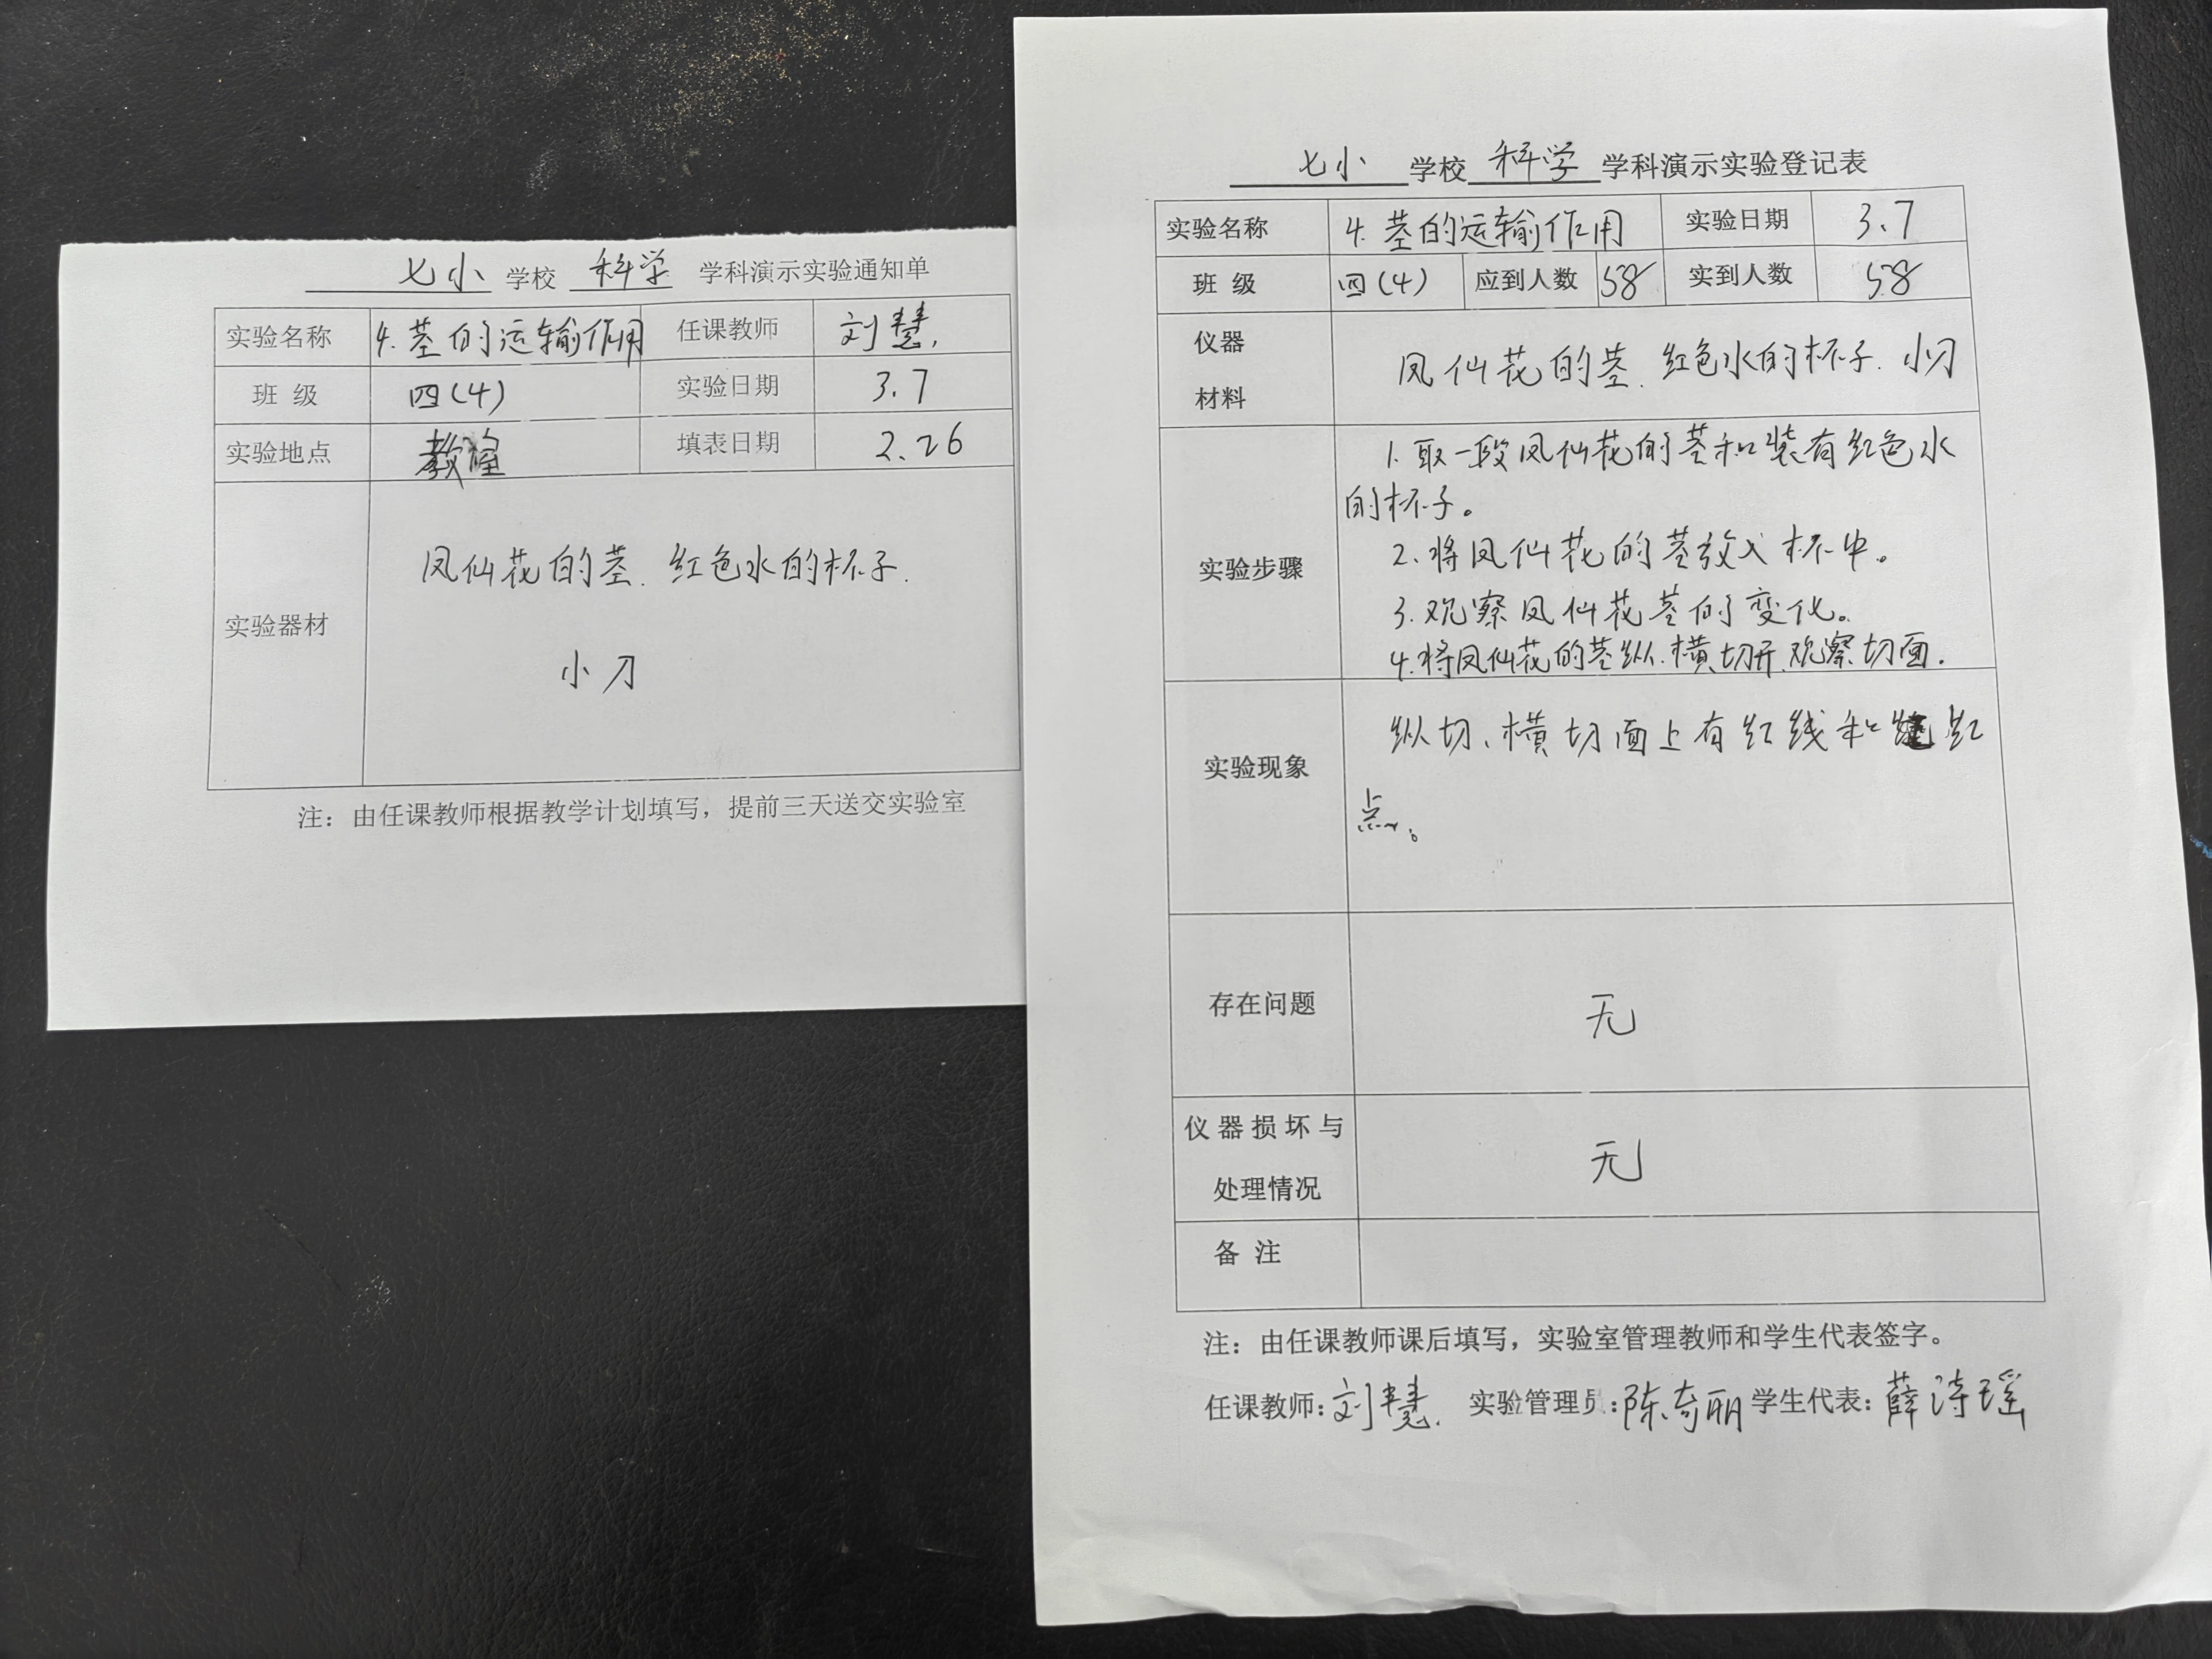 七小 学校 科学 学科演示实验通知单
实验名称 4.茎的运输作用 任课教师 刘慧.
班 级 四(4) 实验日期 3.7
实验地点 教室 填表日期 2.26
实验器材 凤仙花的茎.红色水的杯子.
小刀
注：由任课教师根据教学计划填写，提前三天送交实验室
七小 学校 科学 学科演示实验登记表
实验名称 4.茎的运输作用 实验日期 3.7
班 级 四(4) 应到人数 58 实到人数 58
仪器
材料 凤仙花的茎.红色水的杯子.小刀
实验步骤
1.取一段凤仙花的茎和装有红色水
的杯子。
2.将凤仙花的茎放入杯中。
3.观察凤仙花茎的变化。
4.将凤仙花的茎纵.横切开.观察切面.
实验现象
纵切、横切面上有红线和红
点。
存在问题 无
仪器损坏与
处理情况 无
备 注
注：由任课教师课后填写，实验室管理教师和学生代表签字。
任课教师:刘慧. 实验管理员:陈奇丽 学生代表:薛诗瑶